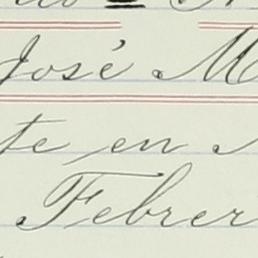 José M
te en
Febrer